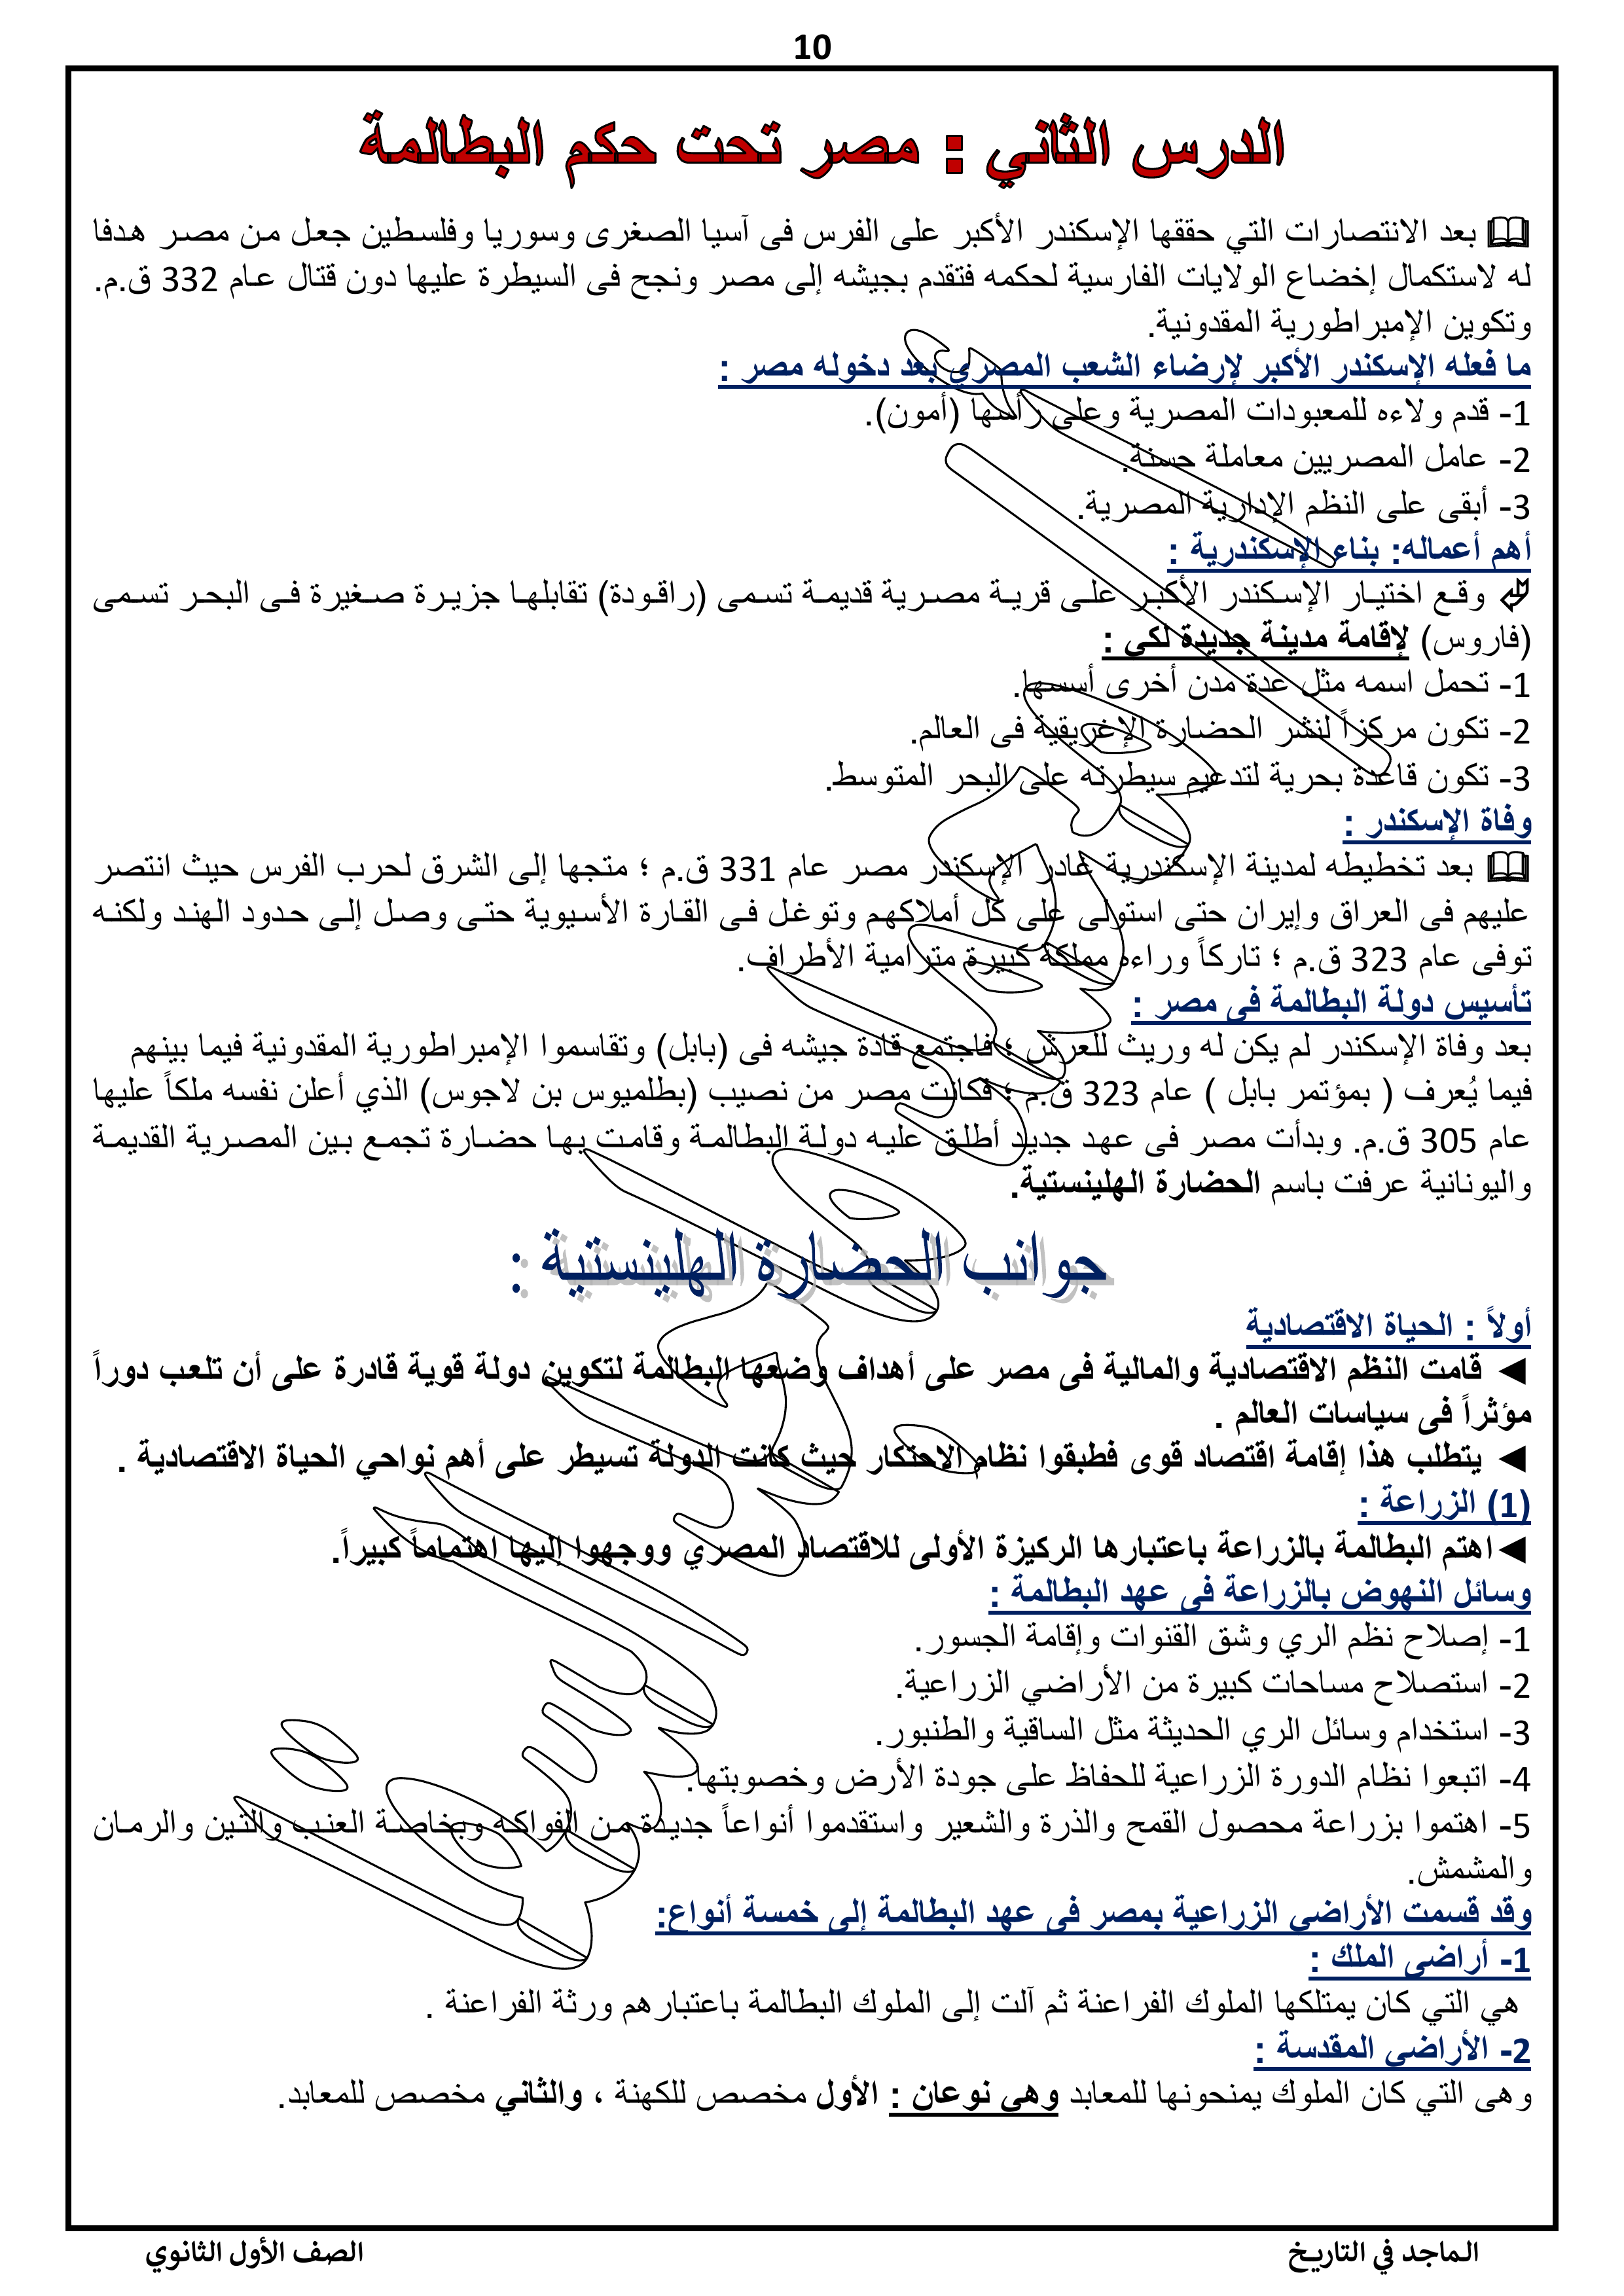 10
الدرس الثاني : مصر تحت حكم البطالمة
بعد الانتصارات التي حققها الإسكندر الأكبر على الفرس فى آسيا الصغرى وسوريا وفلسطين جعل من مصر هدفا
له لاستكمال إخضاع الولايات الفارسية لحكمه فتقدم بجيشه إلى مصر ونجح فى السيطرة عليها دون قتال عام 332 ق.م.
وتكوين الإمبراطورية المقدونية.
ما فعله الإسكندر الأكبر لإرضاء الشعب المصري بعد دخوله مصر :
1- قدم ولاءه للمعبودات المصرية وعلى رأسها (أمون).
2- عامل المصريين معاملة حسنة.
3- أبقى على النظم الإدارية المصرية.
أهم أعماله: بناء الإسكندرية :
وقع اختيار الإسكندر الأكبر على قرية مصرية قديمة تسمى (راقودة) تقابلها جزيرة صغيرة فى البحر تسمى
(فاروس) لإقامة مدينة جديدة لكى :
1- تحمل اسمه مثل عدة مدن أخرى أسسها.
2- تكون مركزاً لنشر الحضارة الإغريقية فى العالم.
3- تكون قاعدة بحرية لتدعيم سيطرته على البحر المتوسط.
وفاة الإسكندر :
بعد تخطيطه لمدينة الإسكندرية غادر الإسكندر مصر عام 331 ق.م ؛ متجها إلى الشرق لحرب الفرس حيث انتصر
عليهم فى العراق وإيران حتى استولى على كل أملاكهم وتوغل فى القارة الأسيوية حتى وصل إلى حدود الهند ولكنه
توفى عام 323 ق.م ؛ تاركاً وراءه مملكة كبيرة مترامية الأطراف.
تأسيس دولة البطالمة فى مصر :
بعد وفاة الإسكندر لم يكن له وريث للعرش ؛ فاجتمع قادة جيشه فى (بابل) وتقاسموا الإمبراطورية المقدونية فيما بينهم
فيما يُعرف ( بمؤتمر بابل ) عام 323 ق.م ؛ فكانت مصر من نصيب (بطلميوس بن لاجوس) الذي أعلن نفسه ملكاً عليها
عام 305 ق.م. وبدأت مصر فى عهد جديد أطلق عليه دولة البطالمة وقامت بها حضارة تجمع بين المصرية القديمة
واليونانية عرفت باسم الحضارة الهلينستية.
جوانب الحضارة الهلينستية :
أولاً : الحياة الاقتصادية
◄ قامت النظم الاقتصادية والمالية فى مصر على أهداف وضعها البطالمة لتكوين دولة قوية قادرة على أن تلعب دوراً
مؤثراً فى سياسات العالم .
◄ يتطلب هذا إقامة اقتصاد قوى فطبقوا نظام الاحتكار حيث كانت الدولة تسيطر على أهم نواحي الحياة الاقتصادية .
(1) الزراعة :
◄اهتم البطالمة بالزراعة باعتبارها الركيزة الأولى للاقتصاد المصري ووجهوا إليها اهتماماً كبيراً.
وسائل النهوض بالزراعة فى عهد البطالمة :
1- إصلاح نظم الري وشق القنوات وإقامة الجسور.
2- استصلاح مساحات كبيرة من الأراضي الزراعية.
3- استخدام وسائل الري الحديثة مثل الساقية والطنبور.
4- اتبعوا نظام الدورة الزراعية للحفاظ على جودة الأرض وخصوبتها.
5- اهتموا بزراعة محصول القمح والذرة والشعير واستقدموا أنواعاً جديدة من الفواكه وبخاصة العنب والتين والرمان
والمشمش.
وقد قسمت الأراضي الزراعية بمصر فى عهد البطالمة إلى خمسة أنواع:
1- أراضي الملك :
هي التي كان يمتلكها الملوك الفراعنة ثم آلت إلى الملوك البطالمة باعتبارهم ورثة الفراعنة .
2- الأراضي المقدسة :
وهى التي كان الملوك يمنحونها للمعابد وهى نوعان : الأول مخصص للكهنة ، والثاني مخصص للمعابد.
الماجد في التاريخ
الصف الأول الثانوي